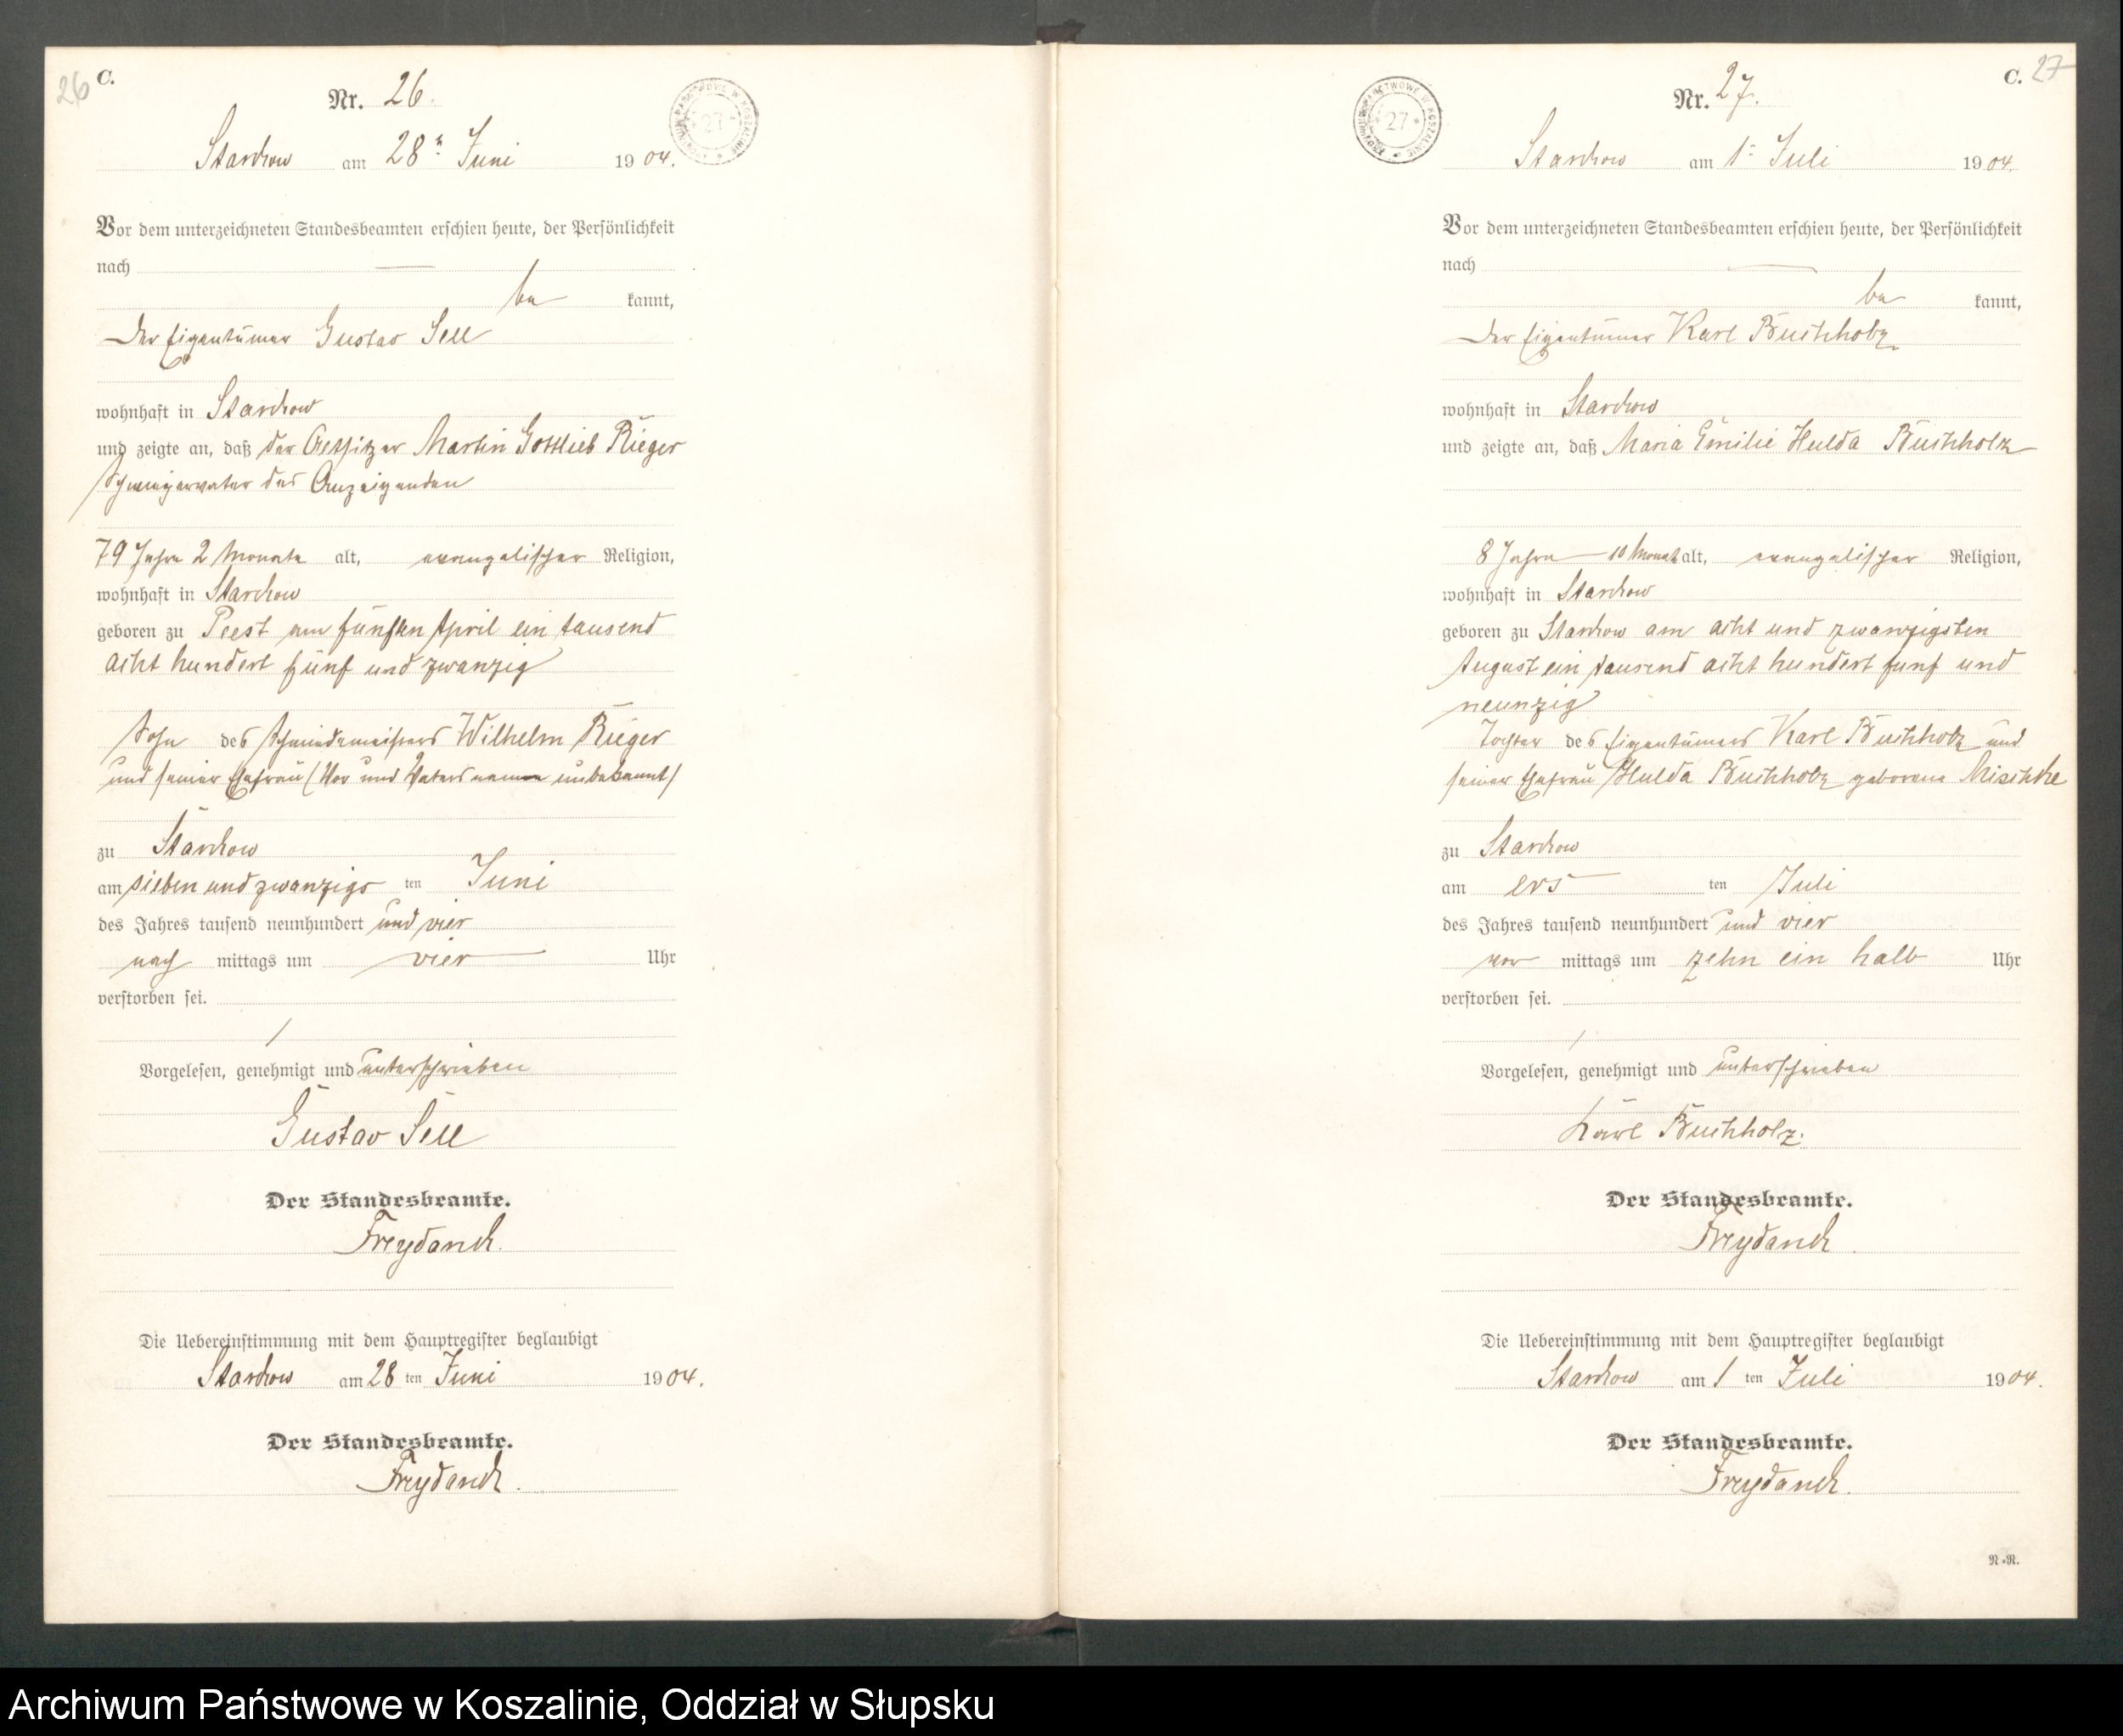 26 C.
Nr. 26.
Starkow am 28n Juni 1904.
Vor dem unterzeichneten Standesbeamten erschien heute, der Persönlichkeit
nach
be kannt,
der Eigentümer Gustav Sell
wohnhaft in Starkow
und zeigte an, daß der Altsitzer Martin Gottlieb Rieger
Schwiegervater des Anzeigenden
79 Jahre 2 Monate alt, evangelischer Religion,
wohnhaft in Starkow
geboren zu Peest am fünften April ein tausend
acht hundert fünf und zwanzig
Sohn des Schmiedemeisters Wilhelm Rieger
und seiner Ehefrau (Vor und Vatersname unbekannt)
zu Starkow
am sieben und zwanzigs ten Juni
des Jahres tausend neunhundert und vier
nach mittags um vier Uhr
verstorben sei.
Vorgelesen, genehmigt und unterschrieben
Gustav Sell
Der Standesbeamte.
Freydanck.
Die Uebereinstimmung mit dem Hauptregister beglaubigt
Starkow am 28 ten Juni 1904.
Der Standesbeamte.
Freydanck.
C. 27
Nr. 27.
ARCHIWUM PAŃSTWOWE W KOSZALINIE
27
Starkow am 1n Juli 1904.
Vor dem unterzeichneten Standesbeamten erschien heute, der Persönlichkeit
nach
be kannt,
der Eigentümer Karl Buchholz
wohnhaft in Starkow
und zeigte an, daß Maria Emilie Hulda Buchholz
8 Jahre 10 Monat alt, evangelischer Religion,
wohnhaft in Starkow
geboren zu Starkow am acht und zwanzigsten
August ein tausend acht hundert fünf und
neunzig
Tochter des Eigentümers Karl Buchholz und
seiner Ehefrau Hulda Buchholz geborene Mischke
zu Starkow
am ers ten Juli
des Jahres tausend neunhundert und vier
vor mittags um zehn ein halb Uhr
verstorben sei.
Vorgelesen, genehmigt und unterschrieben
Karl Buchholz.
Der Standesbeamte.
Freydanck.
Die Uebereinstimmung mit dem Hauptregister beglaubigt
Starkow am 1 ten Juli 1904.
Der Standesbeamte.
Freydanck.
N.-R.
Archiwum Państwowe w Koszalinie, Oddział w Słupsku